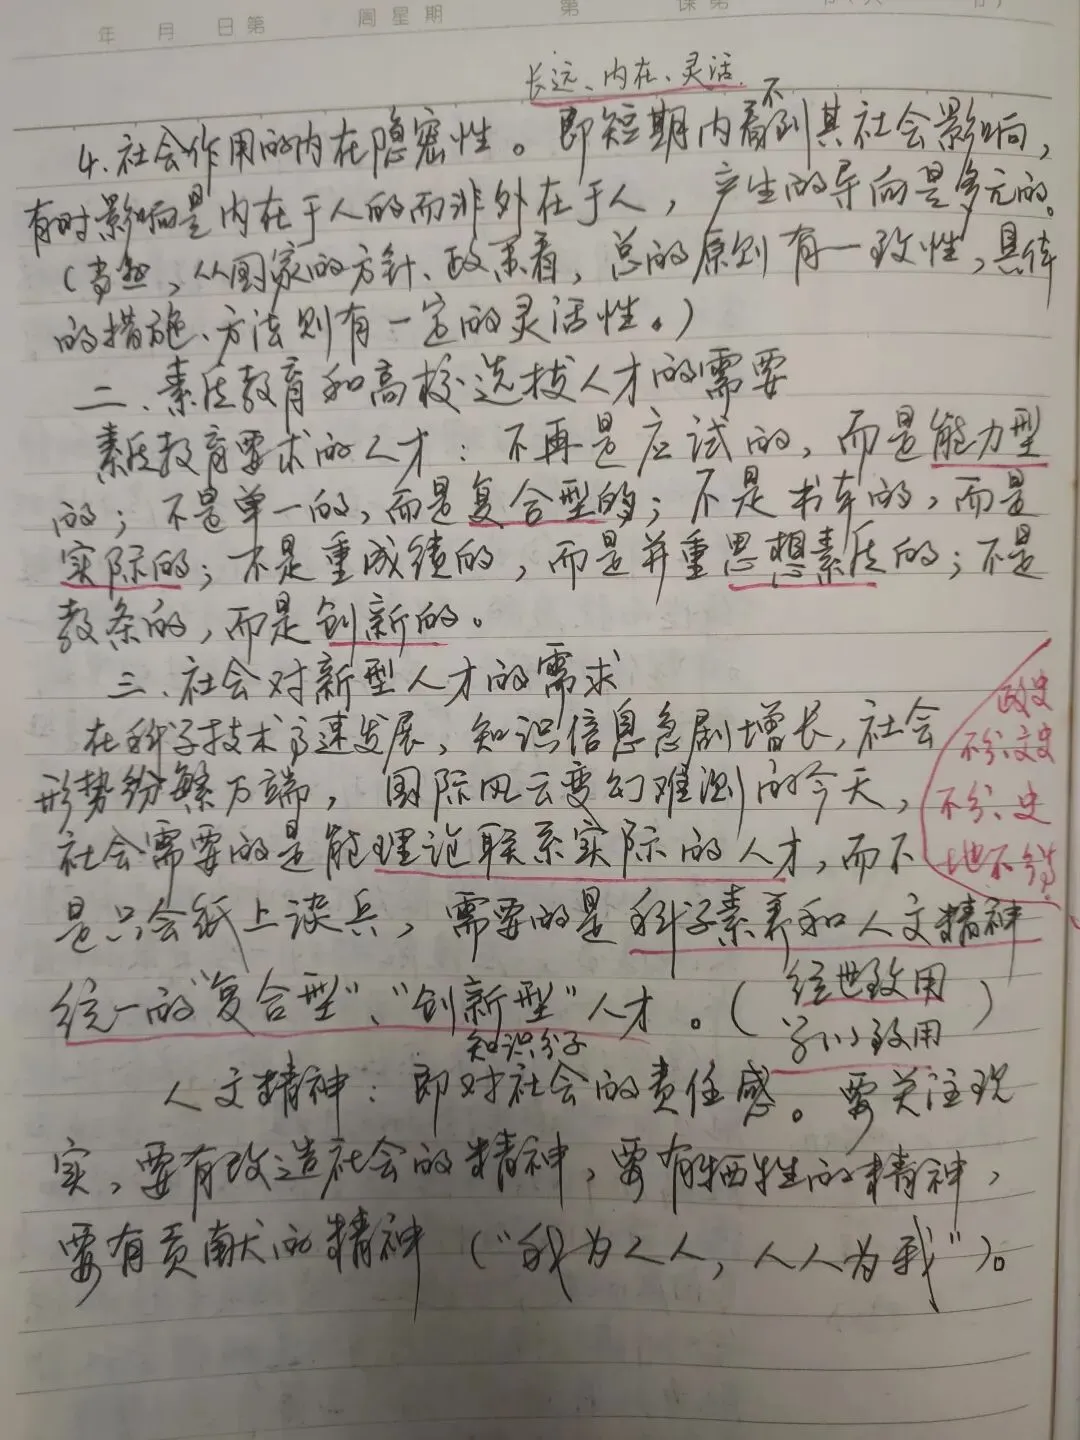 年 月 日第 周星期 第 课第
长远、内在、灵活
4.社会作用的内在隐密性。即短期内看不到其社会影响,
有时影响是内在于人的而非外在于人,产生的导向是多元的。
(当然,从国家的方针、政策看,总的原则有一致性,具体
的措施、方法则有一定的灵活性。)
二、素质教育和高校选拔人才的需要
素质教育要求的人才:不再是应试的,而是能力型
的;不是单一的,而是复合型的;不是书本的,而是
实际的;不是重成绩的,而是并重思想素质的;不是
教条的,而是创新的。
三、社会对新型人才的需求
在科学技术高速发展,知识信息急剧增长,社会
形势纷繁万端,国际风云变幻难测的今天,
社会需要的是能理论联系实际的人才,而不
是只会纸上谈兵,需要的是科学素养和人文精神
统一的"复合型"、"创新型"人才。(经世致用
学以致用)
政史
不分、文史
不分、史
地不分
知识分子
人文精神:即对社会的责任感。要关注现
实,要有改造社会的精神,要有牺牲的精神,
要有贡献的精神("我为人人,人人为我")。